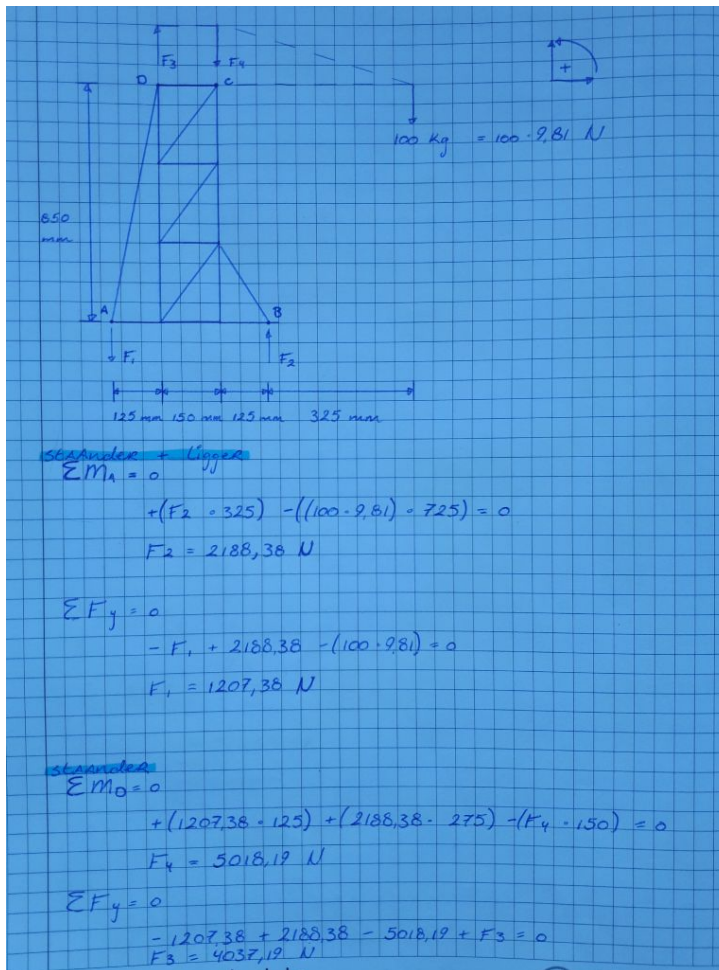 F3 F4
D C
+
100 kg = 100 · 9,81 N
650
mm
A B
F1 F2
125 mm 150 mm 125 mm 325 mm
staander + Ligger
ΣMA = 0
+(F2 · 325) -((100 · 9,81) · 725) = 0
F2 = 2188,38 N
ΣFy = 0
- F1 + 2188,38 -(100 · 9,81) = 0
F1 = 1207,38 N
staander
ΣMD = 0
+(1207,38 · 125) +(2188,38 · 275) -(F4 · 150) = 0
F4 = 5018,19 N
ΣFy = 0
- 1207,38 + 2188,38 - 5018,19 + F3 = 0
F3 = 4037,19 N